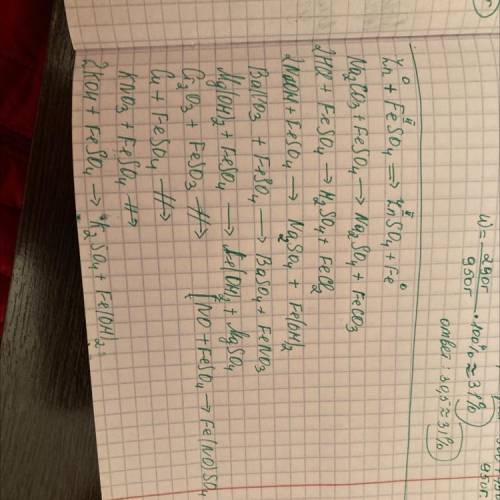 ω = 290г / 950г · 100% ≈ 31%
ответ: 30,5 ≈ 31%
Zn + FeSO₄ → ZnSO₄ + Fe
Na₂CO₃ + FeSO₄ → Na₂SO₄ + FeCO₃
2HCl + FeSO₄ → H₂SO₄ + FeCl₂
2NaOH + FeSO₄ → Na₂SO₄ + Fe(OH)₂
BaNO₃ + FeSO₄ → BaSO₄ + FeNO₃
Mg(OH)₂ + FeSO₄ → Fe(OH)₂ + MgSO₄
Cr₂O₃ + FeSO₃ -//->
Cu + FeSO₄ -//->
KNO₃ + FeSO₄ -//->
[NO + FeSO₄ → Fe(NO)SO₄
2KOH + FeSO₄ → K₂SO₄ + Fe(OH)₂